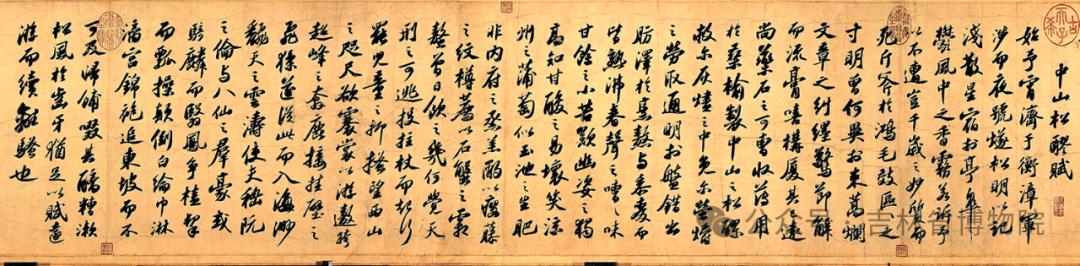 中山松醪賦
始予宵濟於衡漳軍
涉而夜號燧松明以記
淺散星宿於亭皋
鬱風中之香霧若訴予
以不遭豈千歲之妙質而
死斤斧於鴻毛效區區之
寸明曾何異於束蒿爛
文章之糾纏驚節解
而流膏嘻構廈其遠
尚藥石之可曹收薄用
於桑榆製中山之松醪
救爾灰燼之中免爾螢爝
之勞取通明於盤錯出
肪澤於烹熬與黍麥而
皆熟沸舂聲之嘈嘈味
甘餘之小苦歎幽姿之獨
高知甘酸之易壞笑涼
州之蒲萄似玉池之生肥
非內府之烝羔酌以癭藤
之紋樽薦以石蟹之霜
螯曾日飲之幾何覺天
刑之可逃投拄杖而起行
罷兒童之抑搔望西山
之咫尺欲褰裳以游遨跨
超峰之奔鹿接挂壁之
飛猱遂從此而入海渺
翻天之雲濤使夫嵇阮
之倫與八仙之羣豪或
騎麟而翳鳳爭榼挈
而瓢操顛倒白綸巾淋
漓宮錦袍追東坡而不
可及歸餔歠其醨糟漱
松風於齒牙猶足以賦遠
游而續離騷也
公众号 · 吉林省博物院